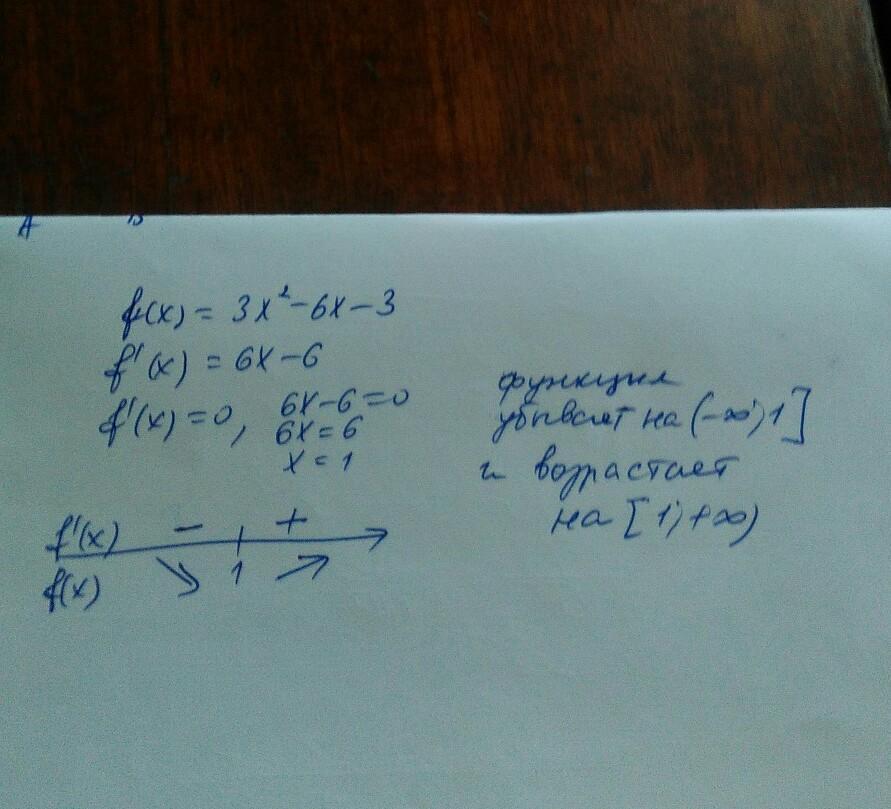 f(x) = 3x² - 6x - 3
f'(x) = 6x - 6
f'(x) = 0, 6x - 6 = 0
6x = 6
x = 1
f'(x) - +
f(x) ↘ 1 ↗
функция
убывает на (-∞; 1]
и возрастает
на [1; +∞)